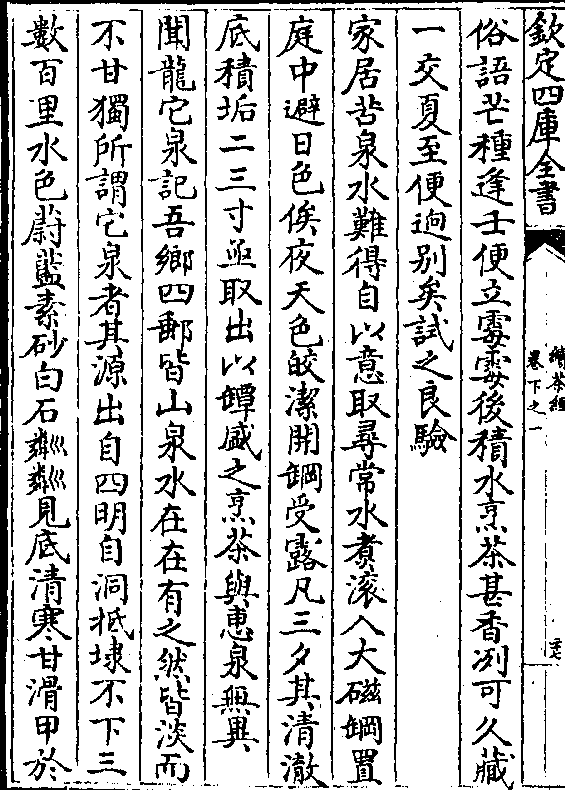 欽定四庫全書
續茶經
卷下之一
俗語芒種逢壬便立霉霉後積水烹茶甚香冽可久藏
一交夏至便逈别矣試之良驗
家居苦泉水難得自以意取尋常水煑滚入大磁罁置
庭中避日色俟夜天色皎潔開罁受露凡三夕其清澈
底積垢二三寸亟取出以罈盛之烹茶與惠泉無異
聞龍它泉記吾鄉四郵皆山泉水在在有之然皆淡而
不甘獨所謂它泉者其源出自四明自洞抵埭不下三
數百里水色蔚藍素砂白石粼粼見底清寒甘滑甲於